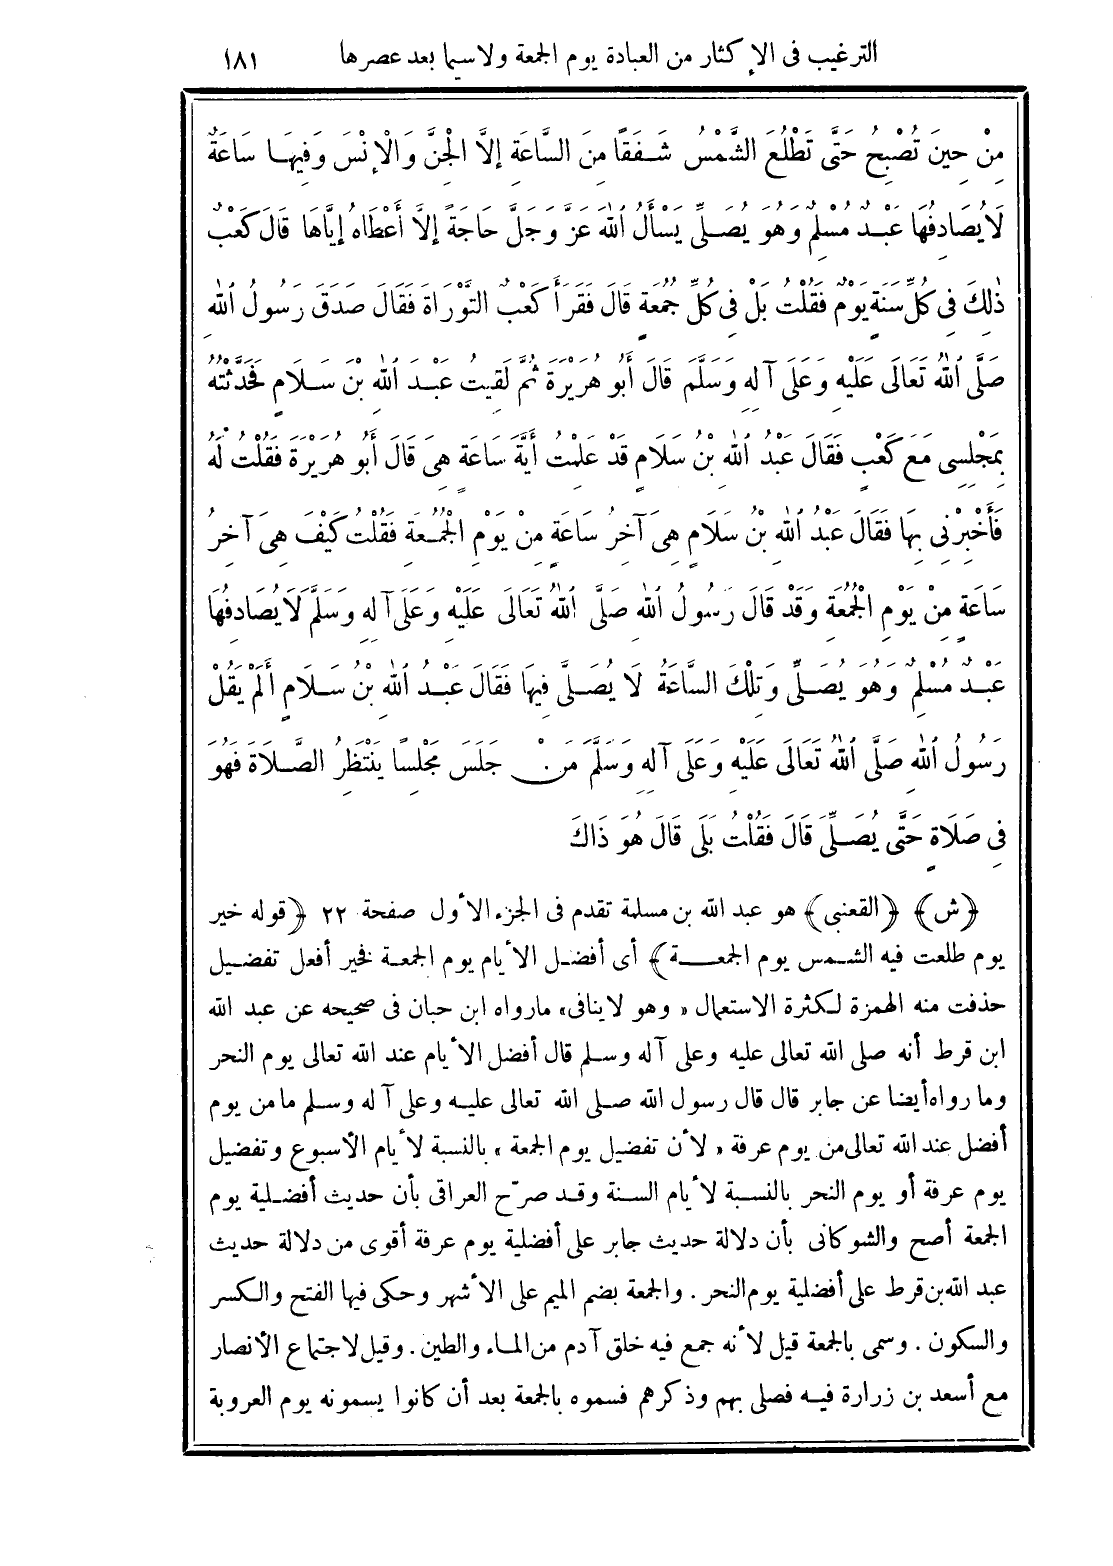 الترغيب فى الإكثار من العبادة يوم الجمعة ولاسيما بعد عصرها ١٨١
مِنْ حِينَ تُصْبِحُ حَتَّى تَطْلُعَ الشَّمْسُ شَفَقًا مِنَ السَّاعَةِ إِلاَّ الْجِنَّ وَالْإِنْسَ وَفِيهَا سَاعَةٌ
لَا يُصَادِفُهَا عَبْدٌ مُسْلِمٌ وَهُوَ يُصَلِّى يَسْأَلُ اللهَ عَزَّ وَجَلَّ حَاجَةً إِلاَّ أَعْطَاهُ إِيَّاهَا قَالَ كَعْبٌ
ذٰلِكَ فِى كُلِّ سَنَةٍ يَوْمٌ فَقُلْتُ بَلْ فِى كُلِّ جُمُعَةٍ قَالَ فَقَرَأَ كَعْبٌ التَّوْرَاةَ فَقَالَ صَدَقَ رَسُولُ اللهِ
صَلَّى اللهُ تَعَالَى عَلَيْهِ وَعَلَى آلِهِ وَسَلَّمَ قَالَ أَبُو هُرَيْرَةَ ثُمَّ لَقِيتُ عَبْدَ اللهِ بْنَ سَلَامٍ فَحَدَّثْتُهُ
بِمَجْلِسِى مَعَ كَعْبٍ فَقَالَ عَبْدُ اللهِ بْنُ سَلَامٍ قَدْ عَلِمْتُ أَيَّةَ سَاعَةٍ هِىَ قَالَ أَبُو هُرَيْرَةَ فَقُلْتُ لَهُ
فَأَخْبِرْنِى بِهَا فَقَالَ عَبْدُ اللهِ بْنُ سَلَامٍ هِىَ آخِرُ سَاعَةٍ مِنْ يَوْمِ الْجُمُعَةِ فَقُلْتُ كَيْفَ هِىَ آخِرُ
سَاعَةٍ مِنْ يَوْمِ الْجُمُعَةِ وَقَدْ قَالَ رَسُولُ اللهِ صَلَّى اللهُ تَعَالَى عَلَيْهِ وَعَلَى آلِهِ وَسَلَّمَ لَا يُصَادِفُهَا
عَبْدٌ مُسْلِمٌ وَهُوَ يُصَلِّى وَتِلْكَ السَّاعَةُ لَا يُصَلَّى فِيهَا فَقَالَ عَبْدُ اللهِ بْنُ سَلَامٍ أَلَمْ يَقُلْ
رَسُولُ اللهِ صَلَّى اللهُ تَعَالَى عَلَيْهِ وَعَلَى آلِهِ وَسَلَّمَ مَنْ جَلَسَ مَجْلِسًا يَنْتَظِرُ الصَّلَاةَ فَهُوَ
فِى صَلَاةٍ حَتَّى يُصَلِّىَ قَالَ فَقُلْتُ بَلَى قَالَ هُوَ ذَاكَ
﴿ش﴾ ﴿القعنبى﴾ هو عبد الله بن مسلمة تقدم فى الجزء الأول صفحة ٢٢ ﴿قوله خير
يوم طلعت فيه الشمس يوم الجمعة﴾ أى أفضل الأيام يوم الجمعة فخير أفعل تفضيل
حذفت منه الهمزة لكثرة الاستعمال «وهو لاينافى» مارواه ابن حبان فى صحيحه عن عبد الله
ابن قرط أنه صلى الله تعالى عليه وعلى آله وسلم قال أفضل الأيام عند الله تعالى يوم النحر
وما رواه أيضا عن جابر قال قال رسول الله صلى الله تعالى عليه وعلى آله وسلم مامن يوم
أفضل عند الله تعالى من يوم عرفة «لأن تفضيل يوم الجمعة» بالنسبة لأيام الأسبوع وتفضيل
يوم عرفة أو يوم النحر بالنسبة لأيام السنة وقد صرّح العراقى بأن حديث أفضلية يوم
الجمعة أصح والشوكانى بأن دلالة حديث جابر على أفضلية يوم عرفة أقوى من دلالة حديث
عبد الله بن قرط على أفضلية يوم النحر. والجمعة بضم الميم على الأشهر وحكى فيها الفتح والكسر
والسكون. وسمى بالجمعة قيل لأنه جمع فيه خلق آدم من الماء والطين. وقيل لاجتماع الأنصار
مع أسعد بن زرارة فيه فصلى بهم وذكرهم فسموه بالجمعة بعد أن كانوا يسمونه يوم العروبة